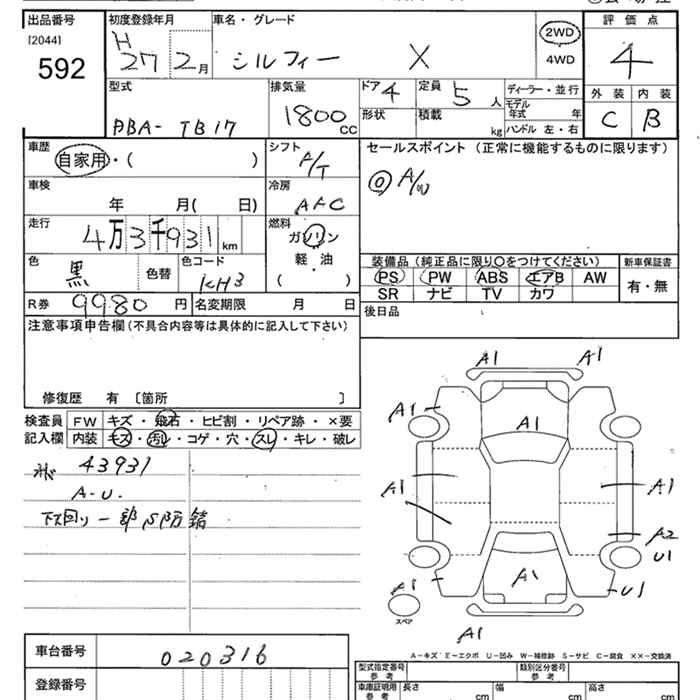 出品番号 初度登録年月 車名・グレード 評価点
[2044]
592
H
27 2月 シルフィー X 2WD
4WD
4
型式 排気量 ドア 4 定員 5 人 ディーラー・並行 外装 内装
モデル年式 年
DBA- TB17 1800 CC 形状 積載 kg ハンドル 左・右 C B
車歴 シフト セールスポイント (正常に機能するものに限ります)
自家用・( ) A/T
◎ A/W
車検 冷房
年 月( 日) AAC
走行 燃料
4万3千931 km ガソリン
・軽油
( )
色 色替 色コード
黒 KH3
装備品 (純正品に限り○をつけてください) 新車保証書
PS PW ABS エアB AW 有・無
SR ナビ TV カワ
R券 9980 円 名変期限 月 日
後日品
注意事項申告欄(不具合内容等は具体的に記入して下さい)
修復歴 有 〔箇所 〕
検査員 FW キズ・飛石・ヒビ割・リペア跡・×要
記入欄 内装 キズ・汚レ・コゲ・穴・スレ・キレ・破レ
43931
A-U.
下回り一部S防錆
A1 A1
A1 A1 A1
A1 A1
A2
U1
A1 A1 U1
スペア
A1
A-キズ E-エクボ U-凹み W-補修跡 S-サビ C-腐食 ××-交換済
車台番号 020316
型式指定番号 参考 類別区分番号 参考
登録番号 車庫証明用 参考 長さ cm 幅 cm 高さ cm